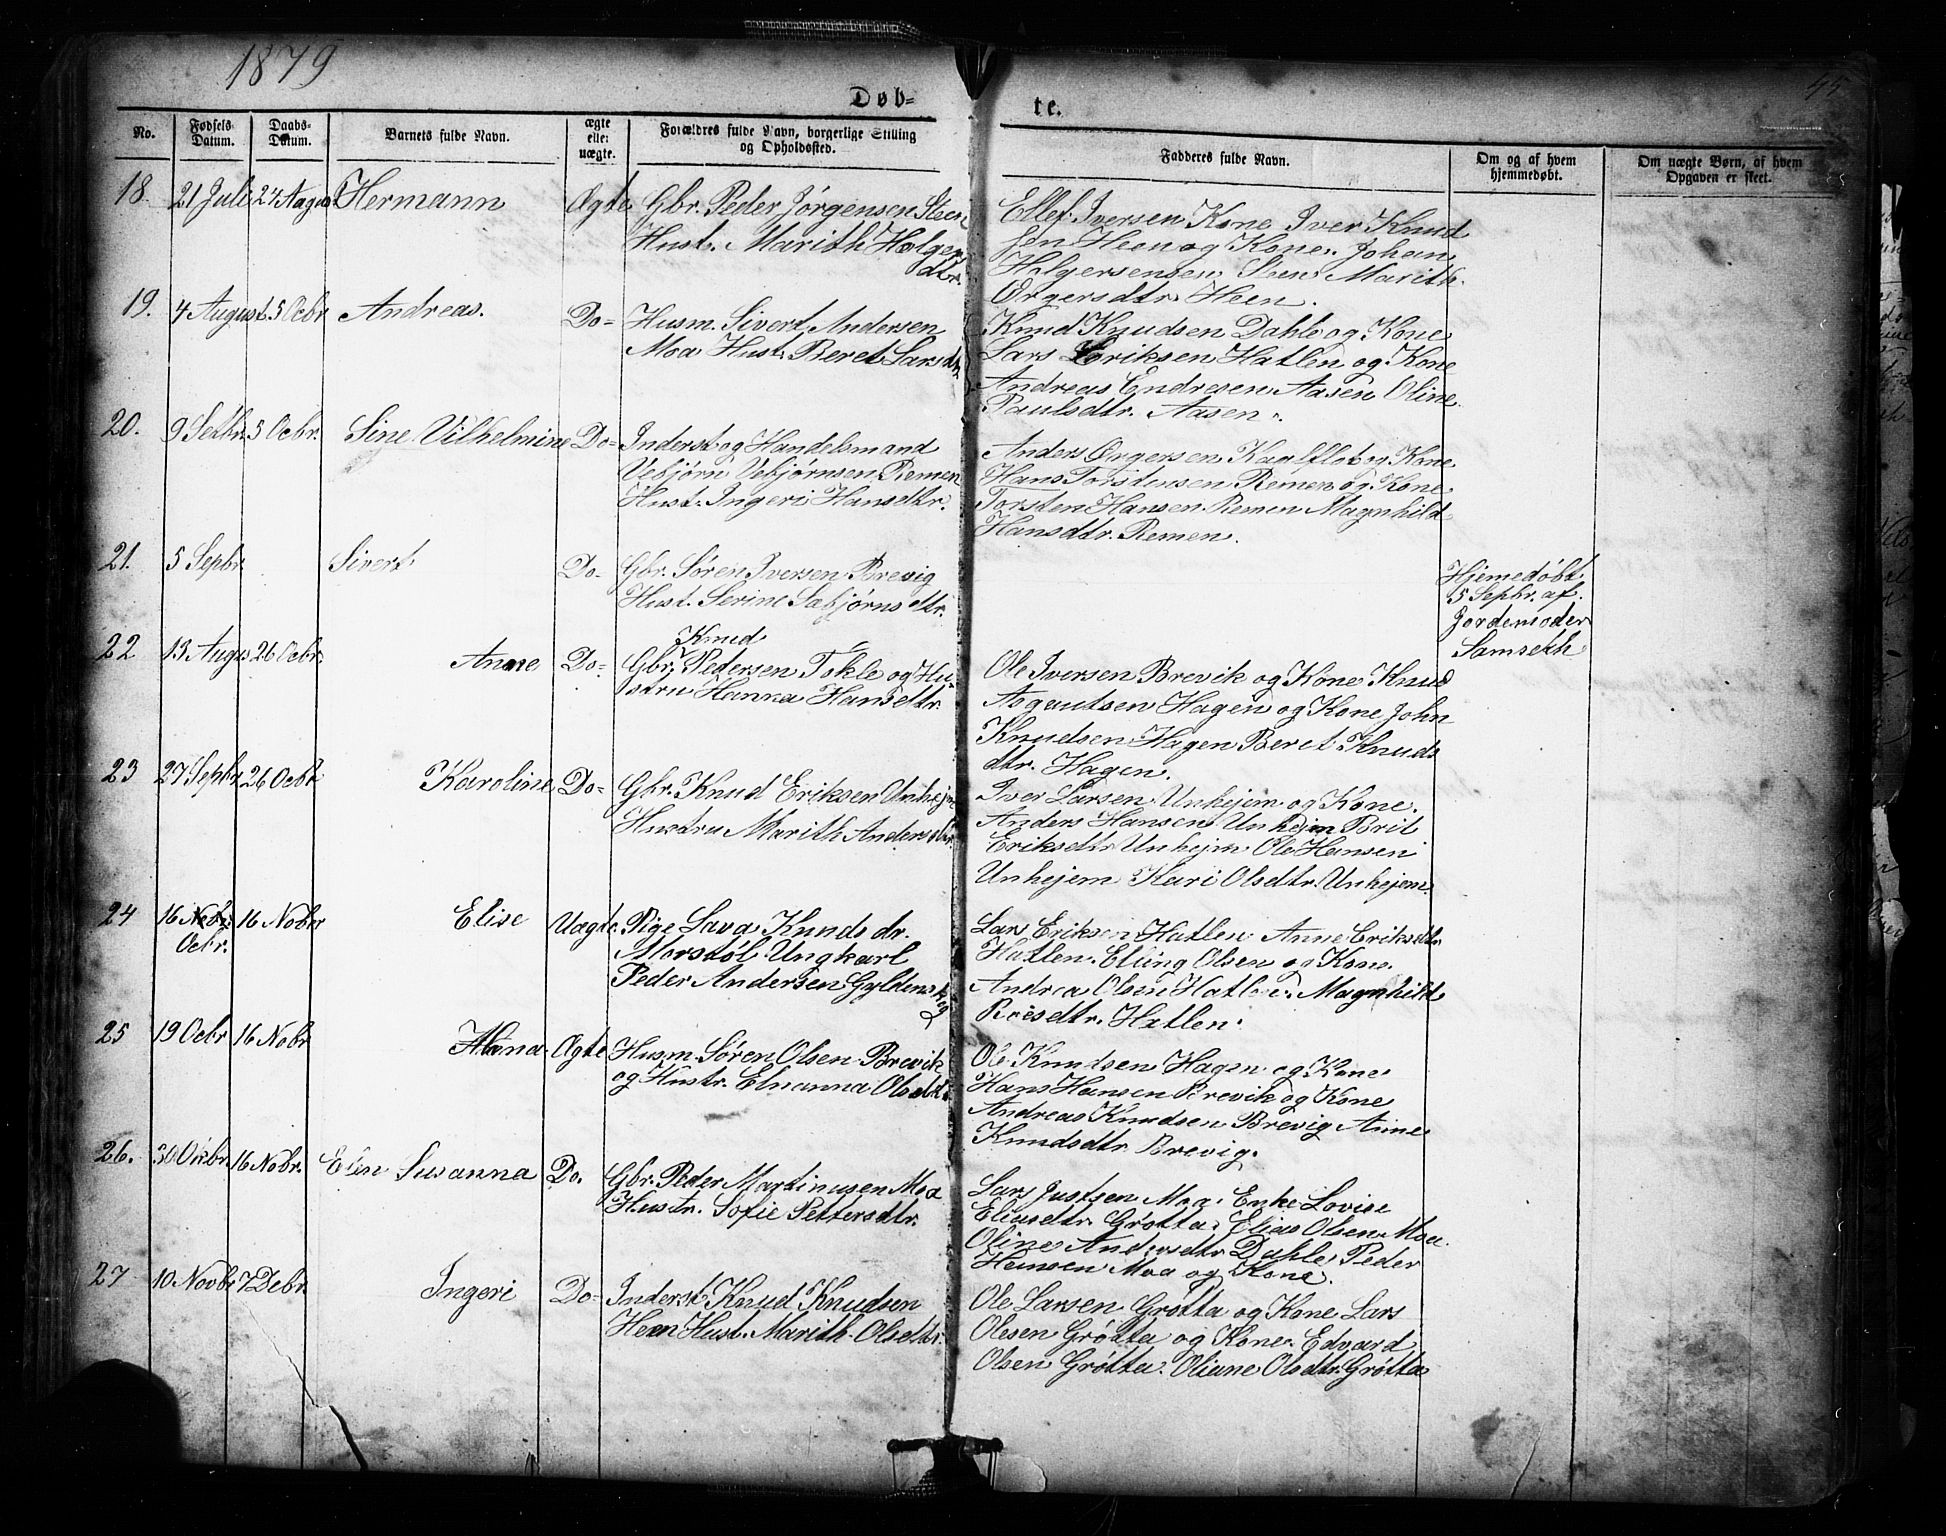 1879
45
Døb-
te.
No.
Fødsels
Datum.
Daabs-
Datum.
Barnets fulde Navn.
ægte
elle:
uægte.
Forældres fulde Navn, borgerlige Stilling
og Opholdssted.
Fadderes fulde Navn.
Om og af hvem
hjemmedøbt.
Om uægte Børn, af hvem
Opgaven er skeet.
18. 21 Juli 24 August Hermann Ægte Gbr. Peder Jørgensen Steen
Hust. Marith Holger
dtr.
Ellef Iversen Kone Iver Knud
sen Heen og Kone. Johan
Holgersen Steen Marith
Ørgersdtr. Heen.
19. 4 August 5 Ocbr Andreas. Do- Husm. Sivert Andersen
Moa Hust. Beret Larsdtr
Knud Knudsen Dahle og Kone
Lars Eriksen Hatlen og Kone
Andreas Endresen Aasen Oline
Paulsdtr. Aasen.
20. 9 Setbr. 5 Ocbr. Sine Vilhelmine Do- Inderst og Handelsmand
Vebjørn Vebjørnsen Remen
Hust. Ingeri Hansdtr.
Anders Ørgersen Kaalflot og Kone
Hans Torstensen Remen og Kone
Torsten Hansen Remen Magnhild
Hansdtr. Remen.
21. 5 Sepbr. Sivert Do- Gbr. Søren Iversen Brevig
Hust. Serine Sæbjørnsdtr.
Hjemedøbt
5 Sepbr. af
Jordemoder
Samseth
22 13 Augus 26 Ocbr. Anne Do- Knud
Gbr. Pedersen Tokle og Hu-
stru Hanna Hansdtr.
Ole Iversen Brevik og Kone Knud
Asgautsen Hagen og Kone John
Knudsen Hagen Beret Knuds
dtr. Hagen.
23 27 Sepbr. 26 Ocbr Karoline Do- Gbr. Knud Eriksen Unhjem
Hustru Marith Andersdtr.
Iver Larsen Unhjem og Kone.
Anders Hansen Unhjem Brit
Eriksdtr Unhjem Ole Hansen
Unhejem Kari Olsdtr. Unhejem.
24 16 Nobr. 16 Nobr Elise Uægte Pige Lava Knudsdr.
Ocbr.
Morstøl Ungkarl
Peder Andersen Gyldenskog
Lars Eriksen Hatlen. Anne Eriksdtr
Hatlen. Elling Olsen og Kone.
Andrea Olsen Hatlen Magnhild
Roesdtr. Hatlen.
25 19 Ocbr 16 Nobr Anna Ægte Husm. Søren Olsen Brevik
og Hustr. Elianna Olsdtr
Ole Knudsen Hagen og Kone
Hans Hansen Brevik og Kone
Andreas Knudsen Brevig Anne
Knudsdtr Brevig.
26. 30 Okbr. 16 Nobr. Elen Susanna Do. Gbr. Peder Martinusen Moa
Hustr. Sofie Pettersdtr.
Lars Justsen Moa. Enke Lovise
Eliasdtr. Grøtta. Elias Olsen Moa.
Oline Andersdtr Dahle Peder
Hansen Moa og Kone.
27 10 Novbr 7 Debr. Ingeri Do- Inderst Knud Knudsen
Heen Hust. Marith Olsdtr.
Ole Larsen Grøtta og Kone Lars
Olesen Grøtta og Kone. Edvard
Olsen Grøtta. Oliane Olsdtr. Grøtta